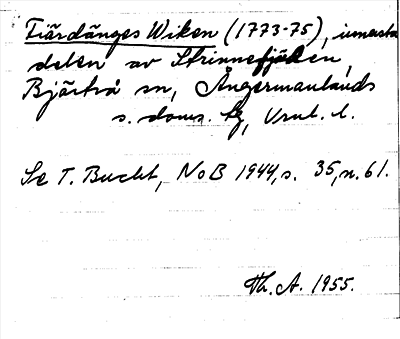 Fiärdänges Wiken (1773-75), innersta
delen av Strinnefjärden,
Bjärtrå sn, Ångermanlands
s. doms. tg, Vnrl. l.
Se T. Bucht, NoB 1944, s. 35, n. 61.
Th. A. 1955.